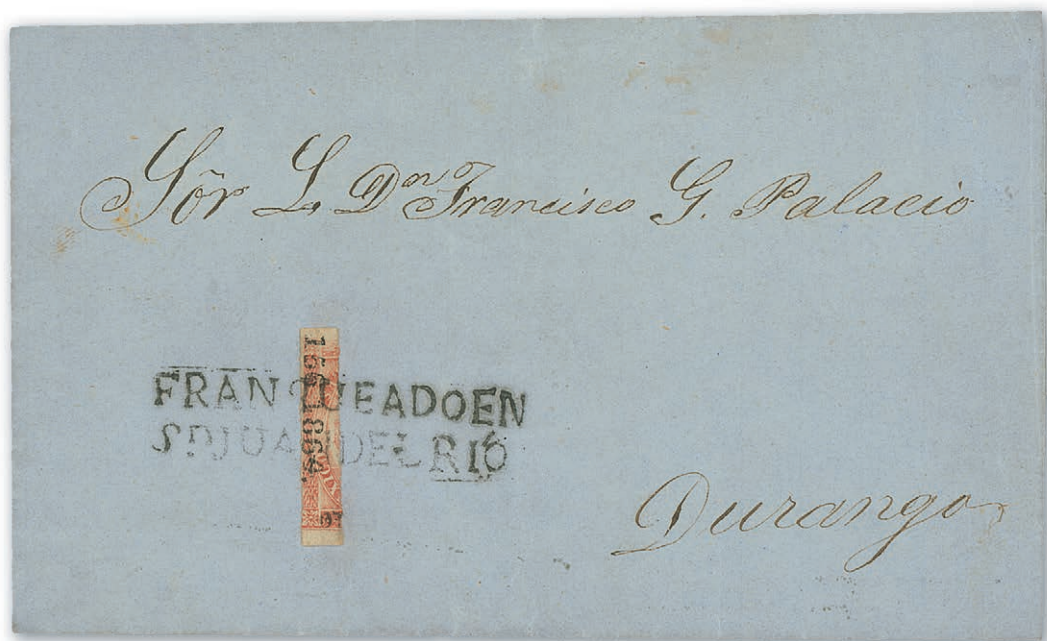 Sôr L. Dn Francisco G. Palacio
FRANQUEADO EN
Sn JUAN DEL RIO
Durango